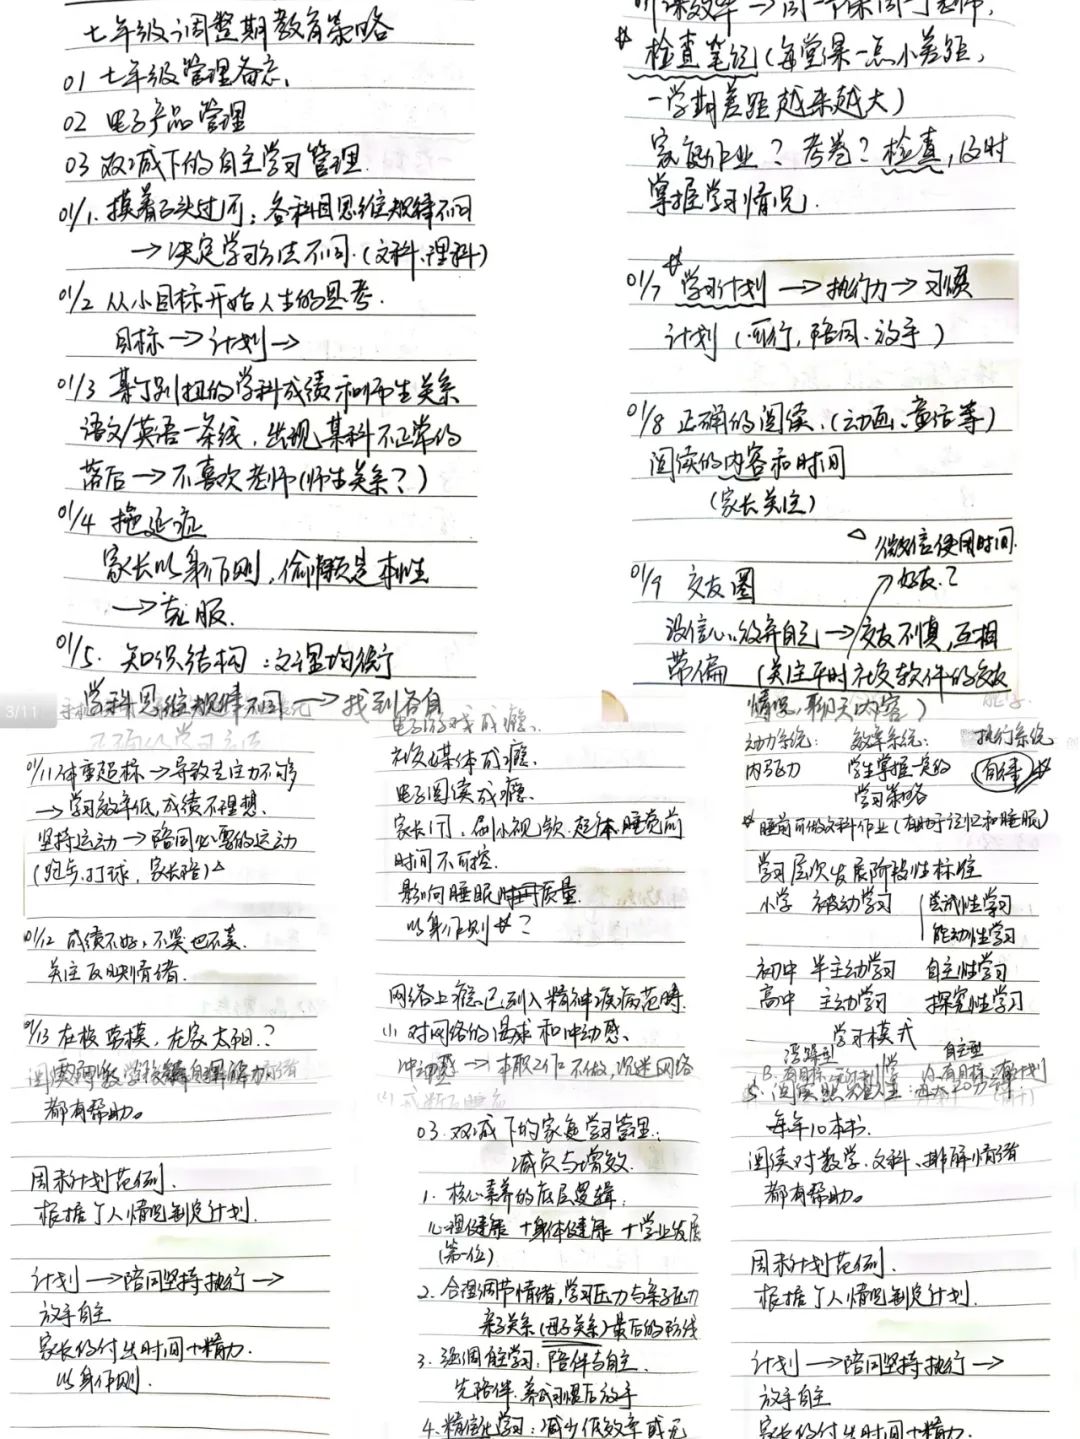 七年级调整期教育策略
01 七年级管理备忘.
02 电子产品管理
03 双减下的自主学习管理.
01/1. 摸着石头过河: 各科目思维规律不同
→决定学习方法不同.(文科、理科)
01/2 从小目标开始人生的思考.
目标→计划→
01/3 某个别扭的学科成绩和师生关系
语文/英语一条线, 出现某科不正常的
落后→不喜欢老师(师生关系?)
01/4 拖延症
家长以身作则, 偷懒是本性
→克服.
01/5. 知识结构: 文理均衡
学科思维规律不同→找到各自
3/11
听课效率→同一节课同一老师,
检查笔记(每堂课一点小差距,
一学期差距越来越大)
家庭作业? 考卷? 检查, 及时
掌握学习情况.
01/7 学习计划→执行力→习惯
计划(可行, 陪同、放手)
01/8 正确的阅读.(动画、童话等)
阅读的内容和时间
(家长关注)
△微信使用时间.
01/9 交友圈 好友?
没信心放弃自己→交友不慎, 互相
带偏 (关注平时社交软件的交友
情况, 聊天内容)
01/11体重超标→导致专注力不够
→学习效率低, 成绩不理想.
坚持运动→陪同必要的运动
(跑步、打球, 家长陪)△
01/12 成绩不好, 不哭也不表.
关注反映情绪.
01/13 在校劳模, 在家太阳?
都有帮助。
周末计划范例.
根据个人情况制定计划.
计划→陪同坚持执行→
放手自主
家长的付出时间+精力.
以身作则.
电子游戏成瘾.
社交媒体成瘾.
电子阅读成瘾.
家长们, 刷小视频, 趁休睡觉前
时间不可控.
影响睡眠质量.
以身作则?
网络上瘾已列入精神疾病范畴.
(1) 对网络的渴求和冲动感.
冲动感→本职工作不做, 沉迷网络
03. 双减下的家庭学习管理:
减负与增效.
1. 核心素养的底层逻辑:
心理健康+身体健康+学业发展
(第一位)
2. 合理调节情绪, 学习压力与亲子压力
亲子关系(母子关系)最后的防线
3. 强调自主学习: 陪伴与自主.
先陪伴. 养成习惯后放手
4. 精准化学习: 减少低效率或无
动力系统: 效率系统: 执行系统
内驱力 学生掌握一定的 自律
学习策略
睡前可做文科作业(有助于记忆和睡眠)
学习层次发展阶段性标准
小学 被动学习 尝试性学习
能动性学习
初中 半主动学习 自主性学习
高中 主动学习 探究性学习
学习模式
自主型
每年10本书.
阅读对数学、文科、排解情绪
都有帮助。
周末计划范例.
根据个人情况制定计划.
计划→陪同坚持执行→
放手自主
家长的付出时间+精力.